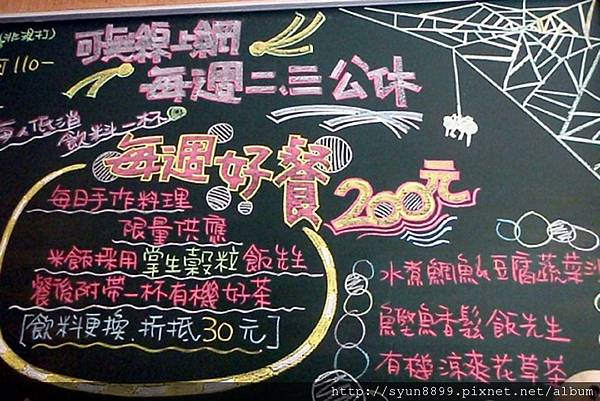 可無線上網
(非現打)
110-
每週二、三公休
每人低消
飲料一杯
每週好餐 200元
每日手作料理
限量供應
米飯採用掌生穀粒飯先生
餐後附帶一杯有機好茶
[飲料更換.折抵30元]
水煮鯛魚&豆腐蔬菜
鰹魚香鬆飯先生
有機涼爽花草茶
http://syun8899.pixnet.net/album